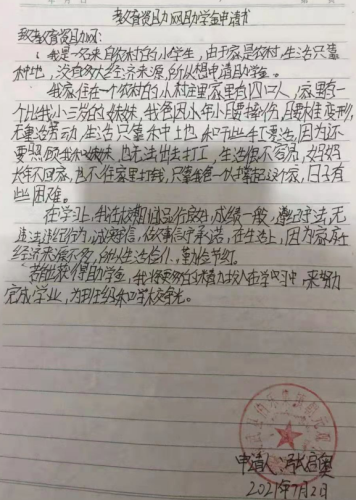 教育资助网助学金申请书
致教育资助网:
我是一名来自农村的小学生,由于家是农村,生活只靠
种地,没有多大经济来源,所以想申请助学金。
我家住在一个农村的小村庄里家里有四口人,家里有一
个比我小三岁的妹妹,我爸因小年小腿摔伤,腿未佳变形,
无重活劳动,生活只靠种土地和干些手工要活,因为还
要照顾我和妹妹,也无法出去打工,生活很不宽苑,妈妈
长年不回家,也不往家里打钱,只靠我爸一人撑起这个家,日子有
些困难。
在学习上,我在校期间品行良好,成绩一般,遵纪守法,无
违法违纪行为,诚实守信,做事信守承诺,在生活上,因为家庭
经济来源不多,所以生活俭仆,勤俭节约。
若能获得助学金,我将更多的精力放入在学习中,来努力
完成学业,为班级和学校争光。
申请人:张启奥
2021年7月2日